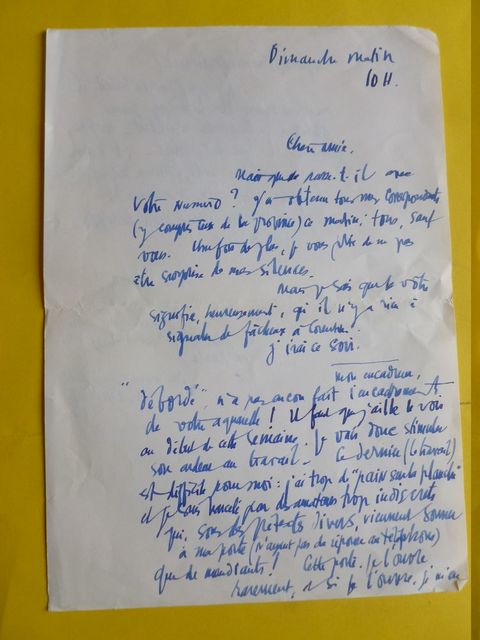 Dimanche matin
10 H.
Chère amie.
Mais que se passe-t-il avec
votre numéro ? J'ai obtenu tous mes correspondants
(y compris ceux de la province) ce matin, tous, sauf
vous. Une fois de plus, je vous prie de ne pas
être surprise de mes silences.
Mais je sais que le vôtre
signifie, heureusement, qu'il n'y a rien à
signaler de fâcheux à
j'irai ce soir.
mon encadreur,
"débordé", n'a pas encore fait l'encadrement
de votre aquarelle ! Il faut que j'aille le voir
au début de cette semaine. Je vais donc stimuler
son ardeur au travail. Ce dernier (le travail)
est difficile pour moi : j'ai trop de "pain sur la planche"
et je suis par des amateurs trop indiscrets
qui, sous des prétextes divers, viennent sonner
à ma porte (n'ayant pas de réponse au téléphone)
que de mendiants ! Cette porte, je l'ouvre
rarement, si je l'ouvre, je m'en